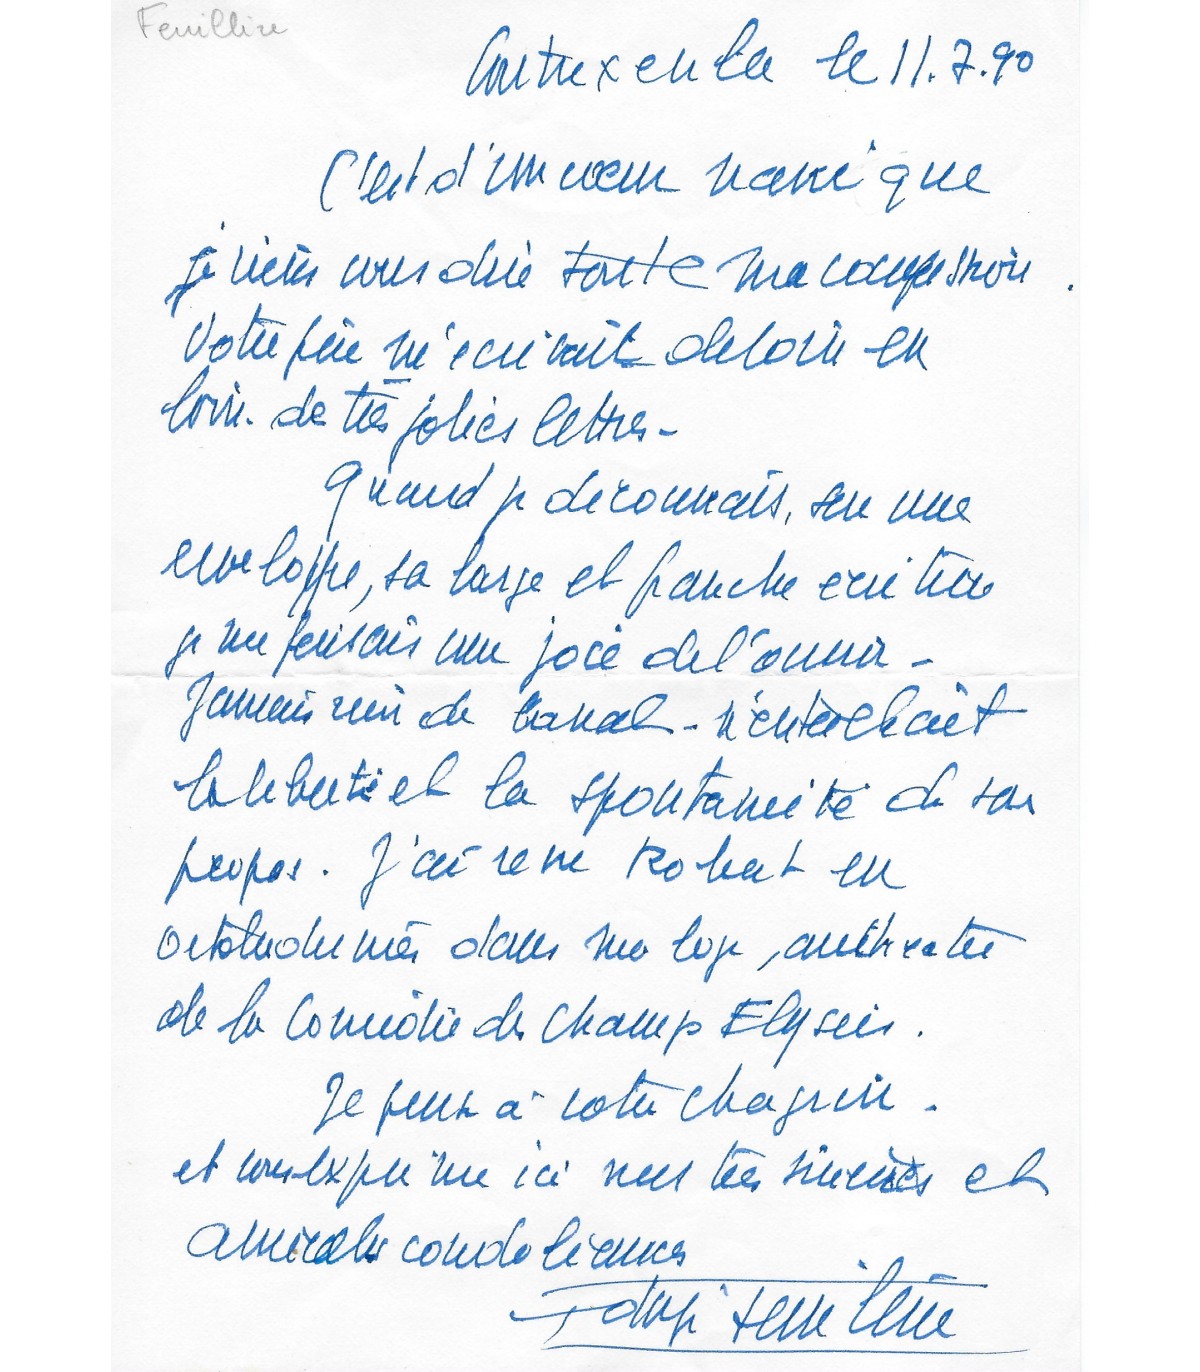 Feuillère
Contrexeville le 11.7.90
C'est d'un cœur navré que
je viens vous dire toute ma compassion.
Votre père m'écrivait de loin en
loin de très jolies lettres -
Quand je reconnais, sur une
enveloppe, sa large et franche écriture
je me faisais une joie de l'ouvrir -
Jamais rien de banal - n'entachait
la liberté et la spontaneité de son
propos. J'ai revu Robert en
octobre dans ma loge, au théâtre
de la Comédie des Champs Elysées.
Je pense à votre chagrin -
et vous exprime ici mes très sincères et
amicales condoléances
Edwige Feuillère